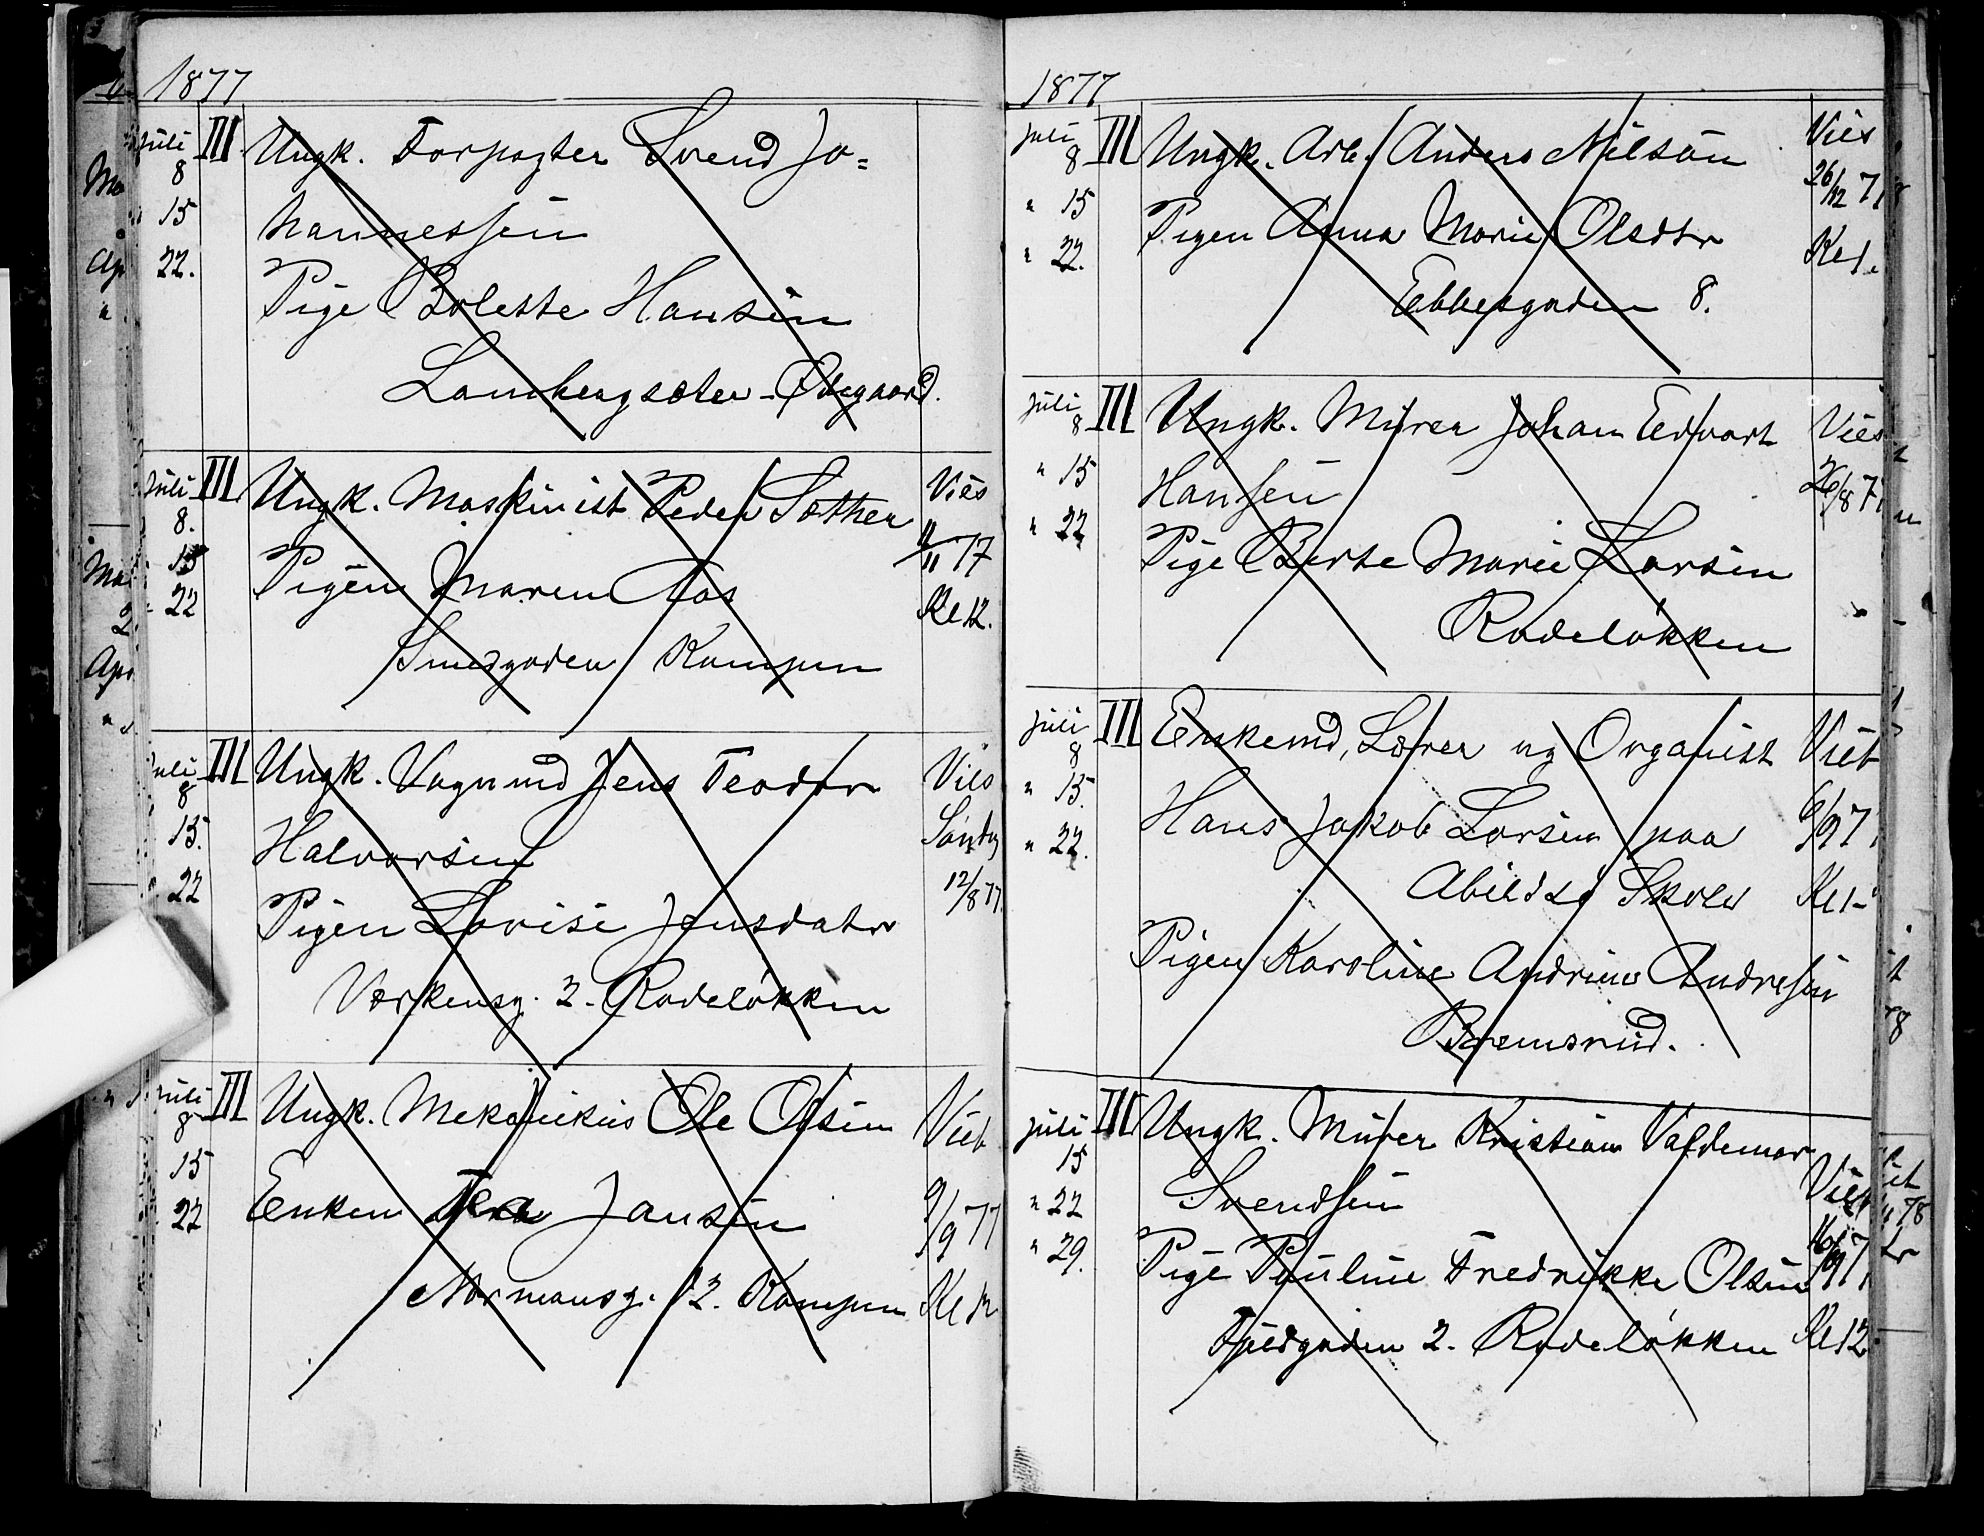 1877
Juli III Ungk. Forpagter Svend Jo=
8
15 hannessen
22. Pige Bolette Hansen
Lambergseter - Ødegaard.
Juli III Ungk. Maskinist Peder Sæther Vies
8. 11/11 77
15 Pigen Maren Aas
22 Kl 12.
Smedgaden Kampen
Juli III Ungk. Vognmd Jens Teodor Vies
8 Søndag
15. Halvorsen
22 12/8 77.
Pigen Lovise Jensdatr
Verkensg. 2. Rodeløkken
Juli III Ungk. Mekanikus Ole Olsen Viet
8
15 Enken Jansen 9/9 77
22
Normansg. 12. Kampen Kl 12
1877
Juli III Ungk. Arb. Anders Nilsen Vies
8 26/12 77
" 15 Pigen Anna Marie Olsdtr
" 22. Kl 1.
Ebbesgaden 8.
Juli III Ungk. Murer Johan Edvart Vies
8
" 15 Hansen 26/8 77
" 22 Pige Berte Marie Larsen
Rodeløkken
Juli III Enkemd, Lærer og Organist Viet
8
" 15. Hans Jakob Larsen paa 9/9 77
" 22. Abildsø Skole Kl 1
Pigen Karoline Andrine Andresen
Bremsrud.
Juli III Ungk. Murer Kristian Valdemar
15 Svendsen Viet
" 22 16/9 77
" 29. Pige Pauline Fredrikke Olsen
Fjeldgaden 2. Rodeløkken Kl 12